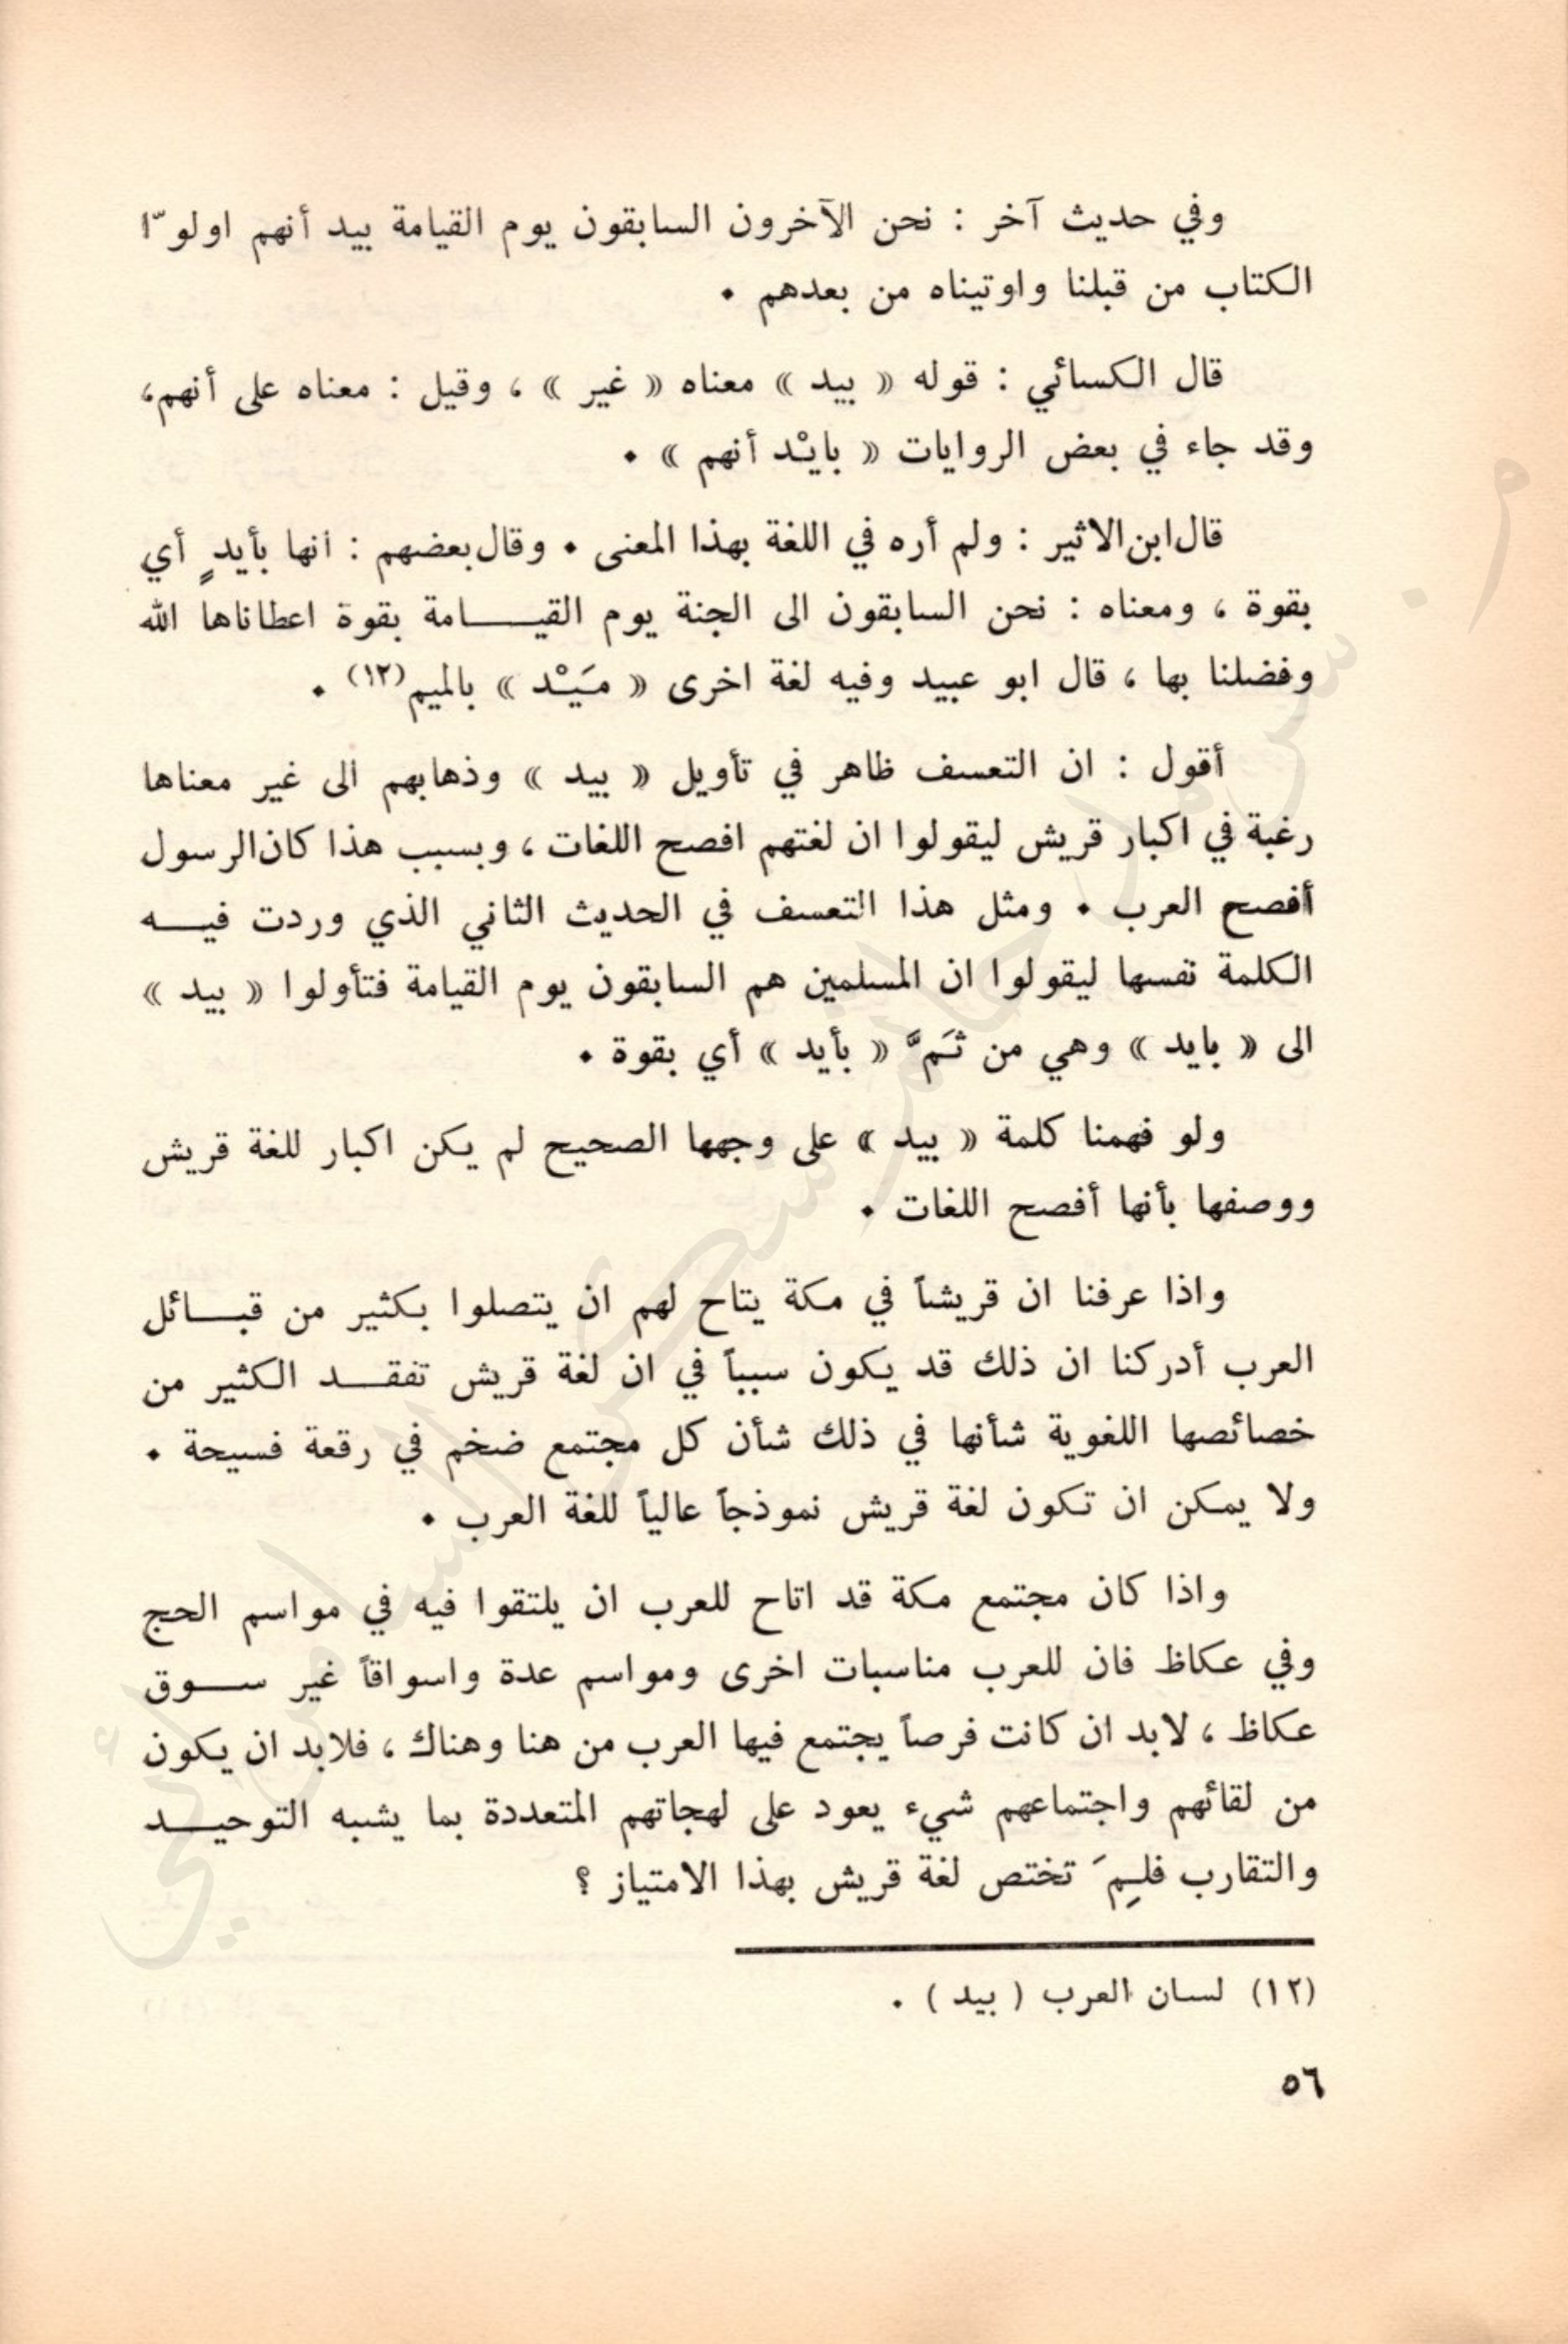 وفي حديث آخر : نحن الآخرون السابقون يوم القيامة بيد أنهم اولوّا
الكتاب من قبلنا واوتيناه من بعدهم .
قال الكسائي : قوله « بيد » معناه « غير » ، وقيل : معناه على أنهم،
وقد جاء في بعض الروايات « بايْد أنهم » .
قال ابن الاثير : ولم أره في اللغة بهذا المعنى . وقال بعضهم : انها بأيدٍ أي
بقوة ، ومعناه : نحن السابقون الى الجنة يوم القيـــامة بقوة اعطاناها الله
وفضلنا بها ، قال ابو عبيد وفيه لغة اخرى « مَيْد » بالميم(١٢) .
أقول : ان التعسف ظاهر في تأويل « بيد » وذهابهم الى غير معناها
رغبة في اكبار قريش ليقولوا ان لغتهم افصح اللغات ، وبسبب هذا كان الرسول
أفصح العرب . ومثل هذا التعسف في الحديث الثاني الذي وردت فيـــه
الكلمة نفسها ليقولوا ان المسلمين هم السابقون يوم القيامة فتأولوا « بيد »
الى « بايد » وهي من ثَمَّ « بأيد » أي بقوة .
ولو فهمنا كلمة « بيد » على وجهها الصحيح لم يكن اكبار للغة قريش
ووصفها بأنها أفصح اللغات .
واذا عرفنا ان قريشاً في مكة يتاح لهم ان يتصلوا بكثير من قبـــائل
العرب أدركنا ان ذلك قد يكون سبباً في ان لغة قريش تفقـــد الكثير من
خصائصها اللغوية شأنها في ذلك شأن كل مجتمع ضخم في رقعة فسيحة .
ولا يمكن ان تكون لغة قريش نموذجاً عالياً للغة العرب .
واذا كان مجتمع مكة قد اتاح للعرب ان يلتقوا فيه في مواسم الحج
وفي عكاظ فان للعرب مناسبات اخرى ومواسم عدة واسواقاً غير ســـوق
عكاظ ، لابد ان كانت فرصاً يجتمع فيها العرب من هنا وهناك ، فلابد ان يكون
من لقائهم واجتماعهم شيء يعود على لهجاتهم المتعددة بما يشبه التوحيـــد
والتقارب فلِمَ تختص لغة قريش بهذا الامتياز ؟
(١٢) لسان العرب ( بيد ) .
٥٦